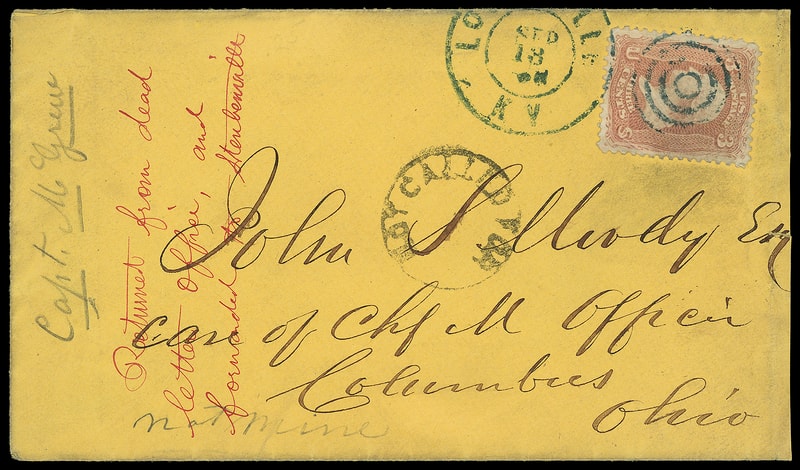 LOUISVILLE
SEP
18
KY
U S
THREE CENTS
3
ADV CALLED FOR
John S Moody Esq
care of Chf M Officer
Columbus
Ohio
Returned from dead
letter office, and
forwarded to Steubenville
Capt. McGrew
not mine